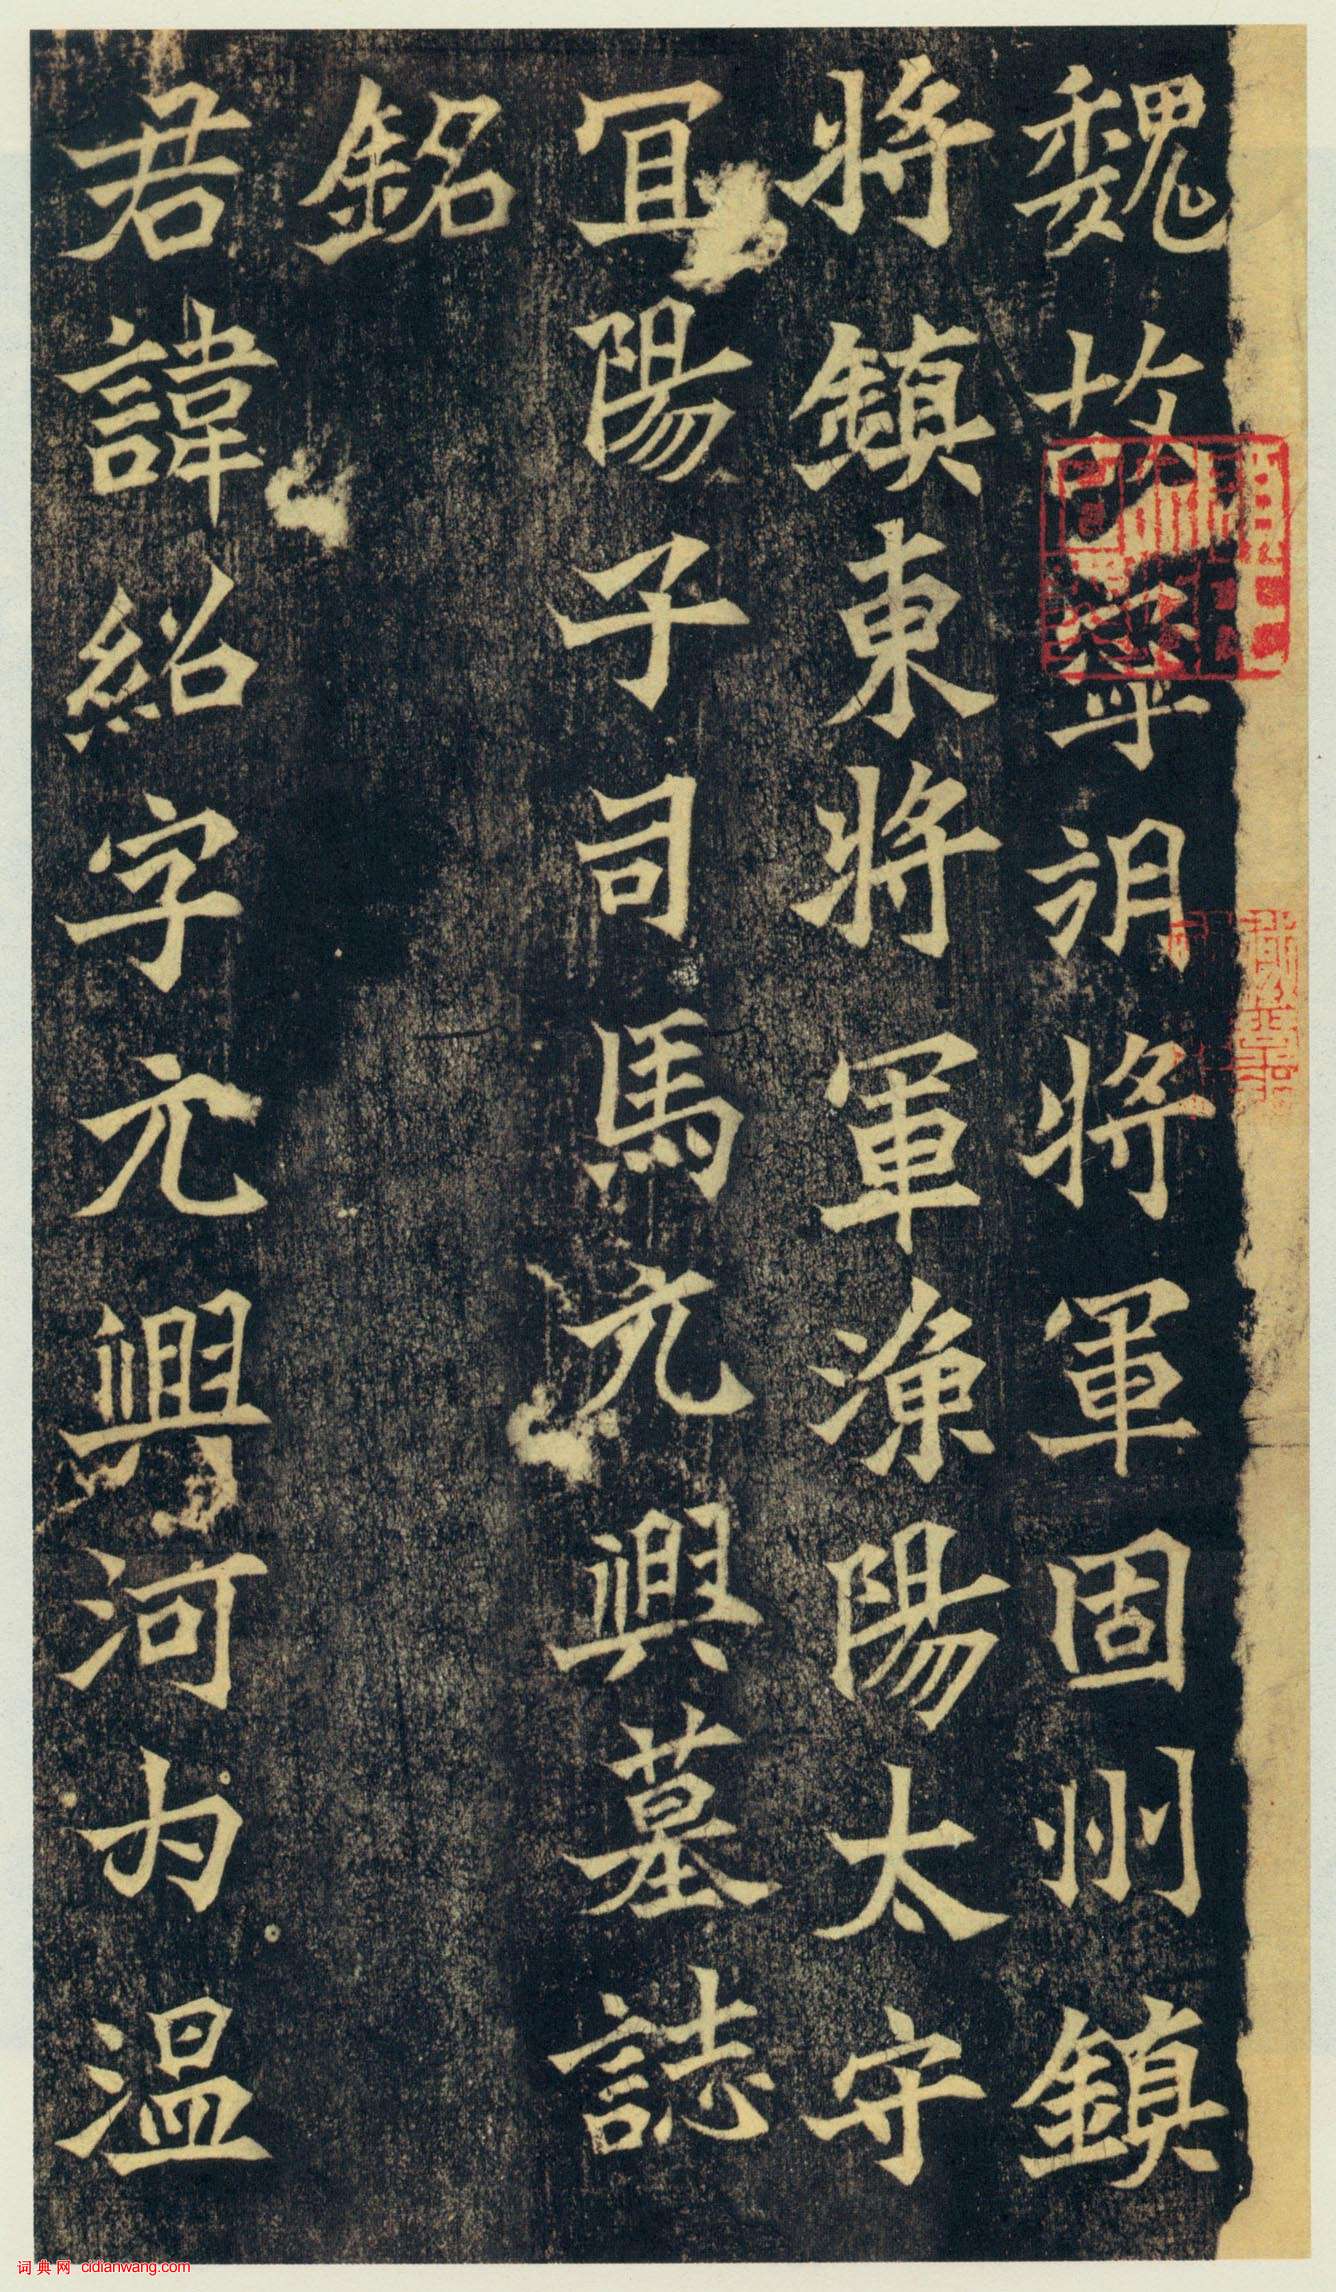 魏故寧朔將軍固州鎮
將鎮東將軍漁陽太守
宜陽子司馬元興墓誌
銘
君諱紹字元興河内温
词典网 cidianwang.com